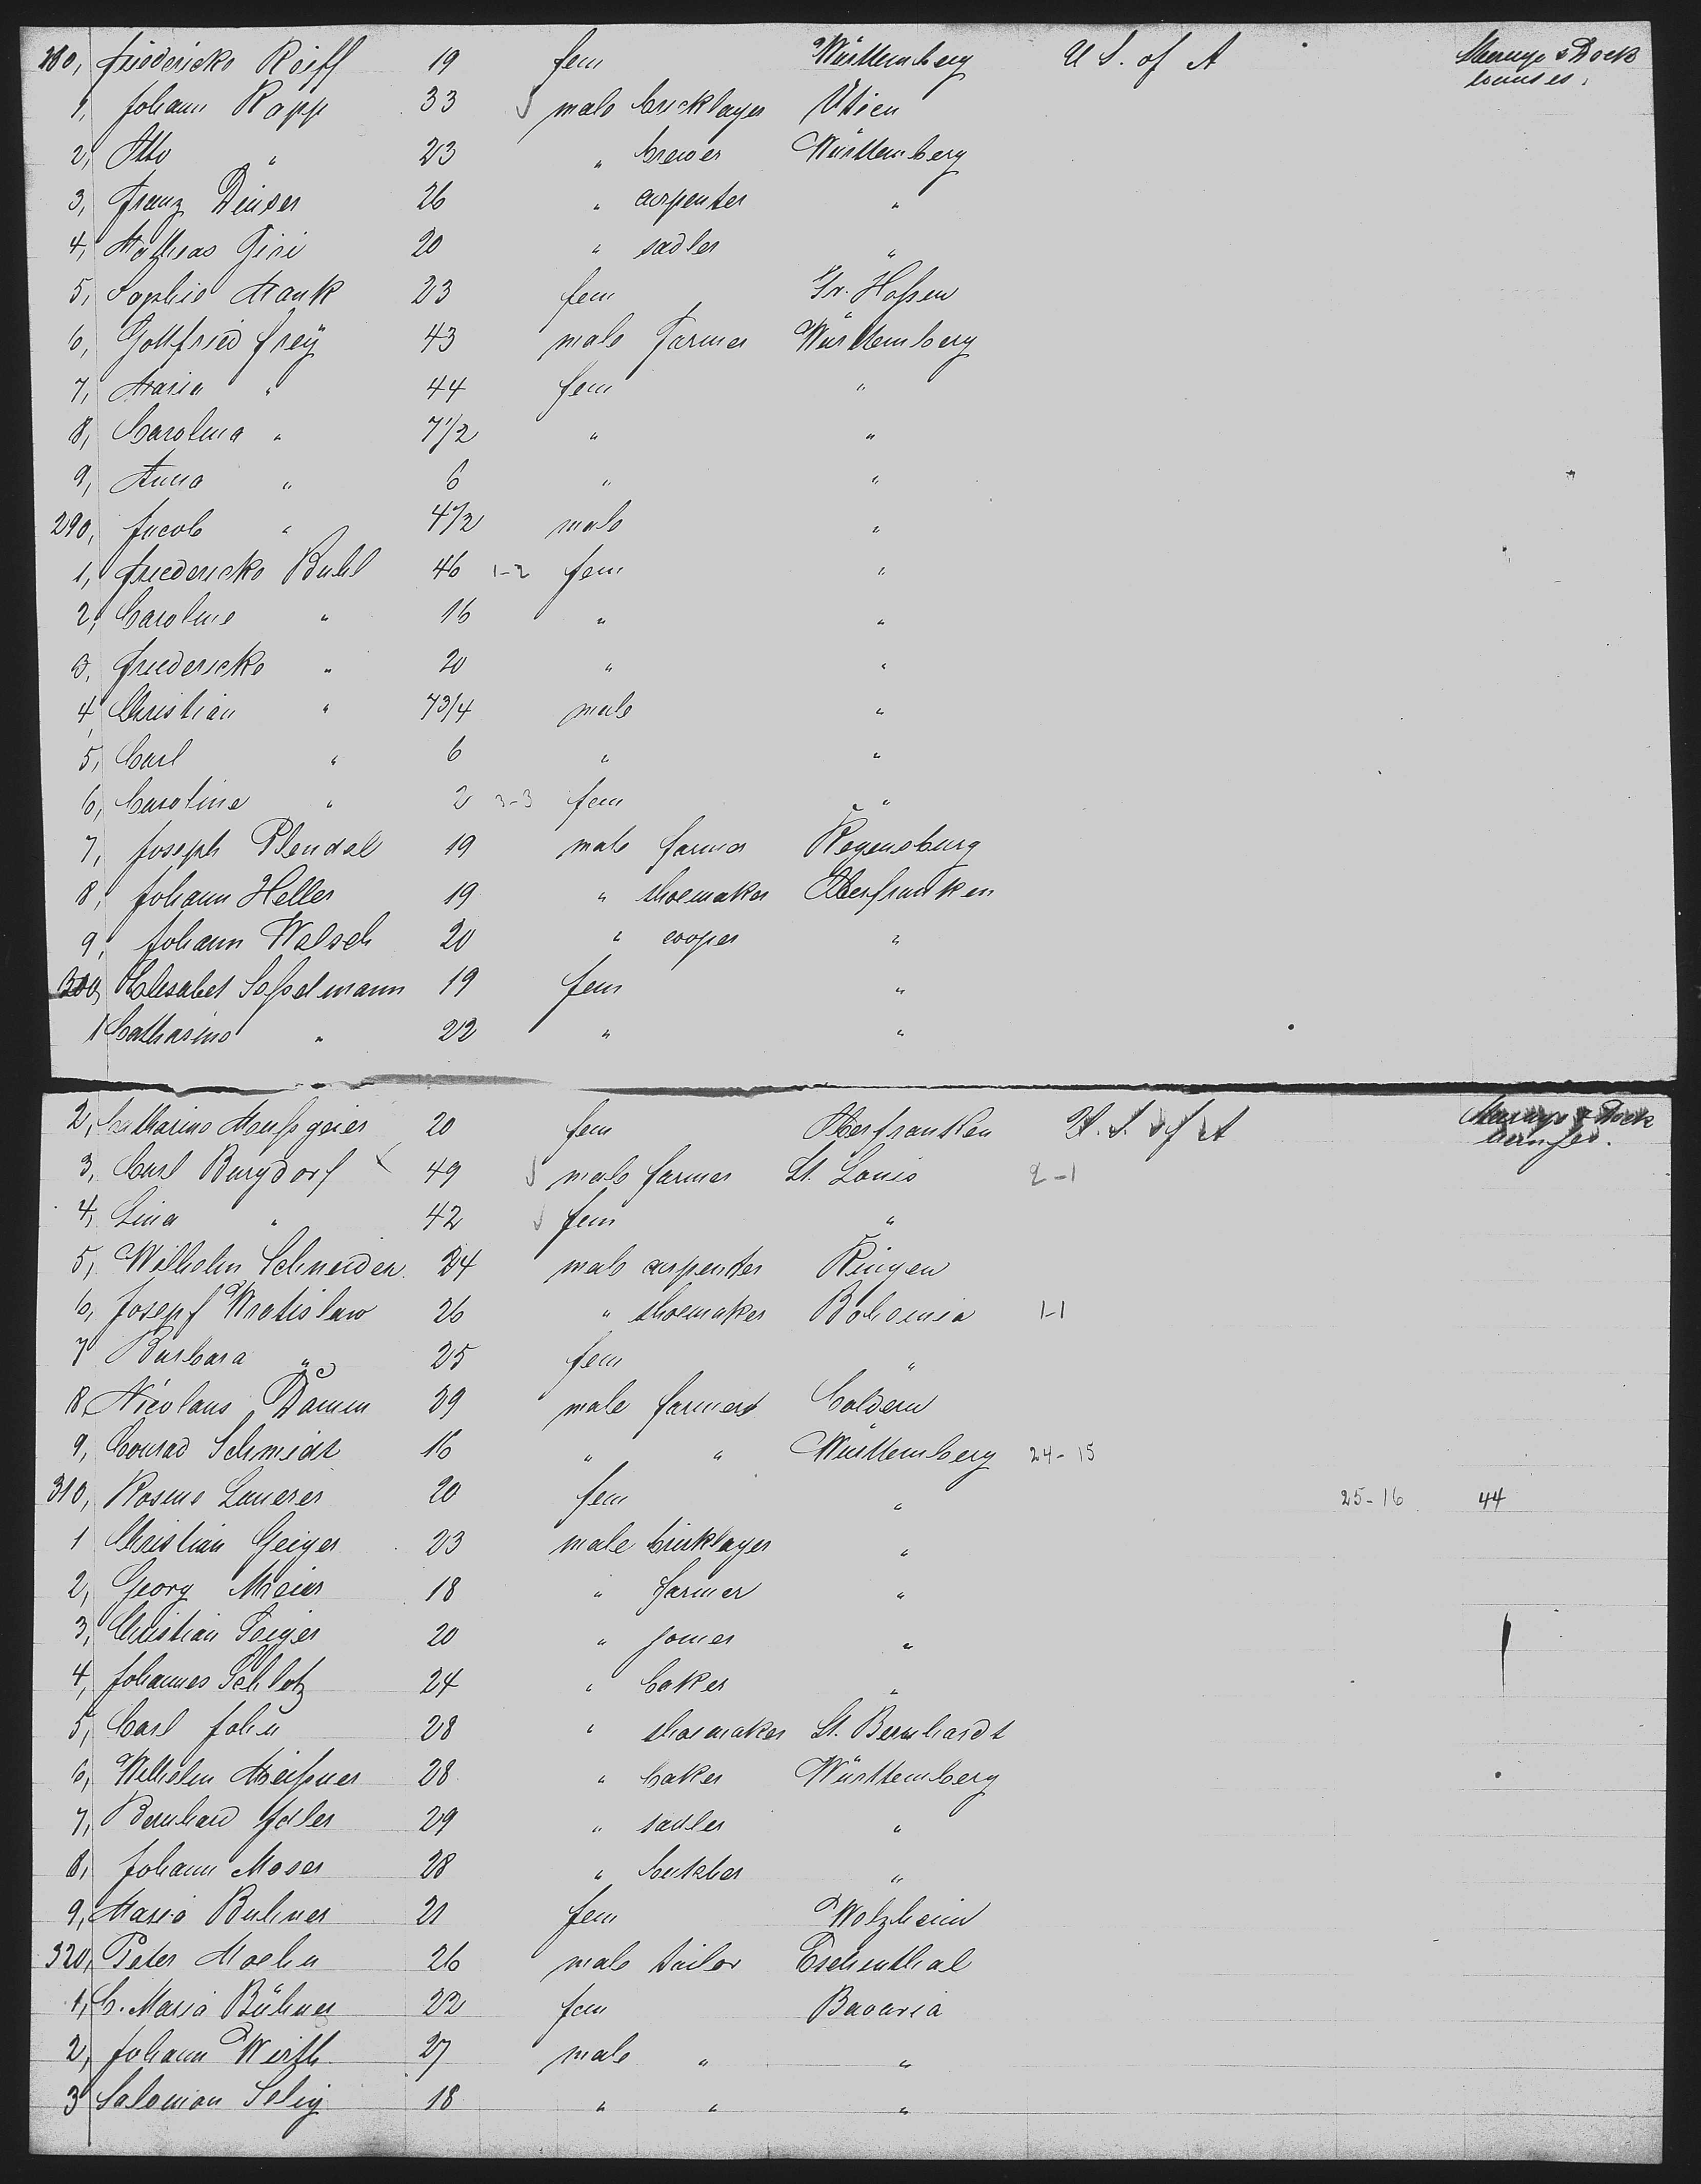 280, Friedericke Reiff 19 fem Württemberg U S. of A Steerage & Deck houses.
1, Johann Rapp 33 male bricklayer
2, Otto " 23 " brewer Württemberg
3, Franz Dinser 26 " carpenter "
4, Mathias Giri 20 " sadler "
5, Sophie Mank 23 fem Gr. Hessen
6, Gottfried Frey 43 male Farmer Württemberg
7, Maria " 44 fem "
8, Carolina " 7 1/2 " "
9, Anna " 6 " "
290, Jacob " 4 1/2 male "
1, Friedericke Buhl 46 1-2 fem "
2, Caroline " 16 " "
3, Friedericke " 20 " "
4, Christian " 7 3/4 male "
5, Carl " 6 " "
6, Caroline " 2 3-3 fem "
7, Joseph Plendel 19 male farmer Regensburg
8, Johann Heller 19 " shoemaker Oberfranken
9, Johann Welsch 20 " cooper "
300, Elisabet Sesselmann 19 fem "
1 Catharine " 22 " "
2, Catharine Meussgeier 20 fem Oberfranken U. S. of A Steerage & Deck houses.
3, Carl Burgdorf 49 male farmer St. Louis 2-1
4, Lina " 42 fem "
5, Wilhelm Schneider 24 male carpenter Ringen
6, Josepf Wratislaw 26 " shoemaker Bohemia 1-1
7 Barbara " 25 fem "
8, Nicolaus Damm 29 male farmer Caldern
9, Conrad Schmidt 16 " " Württemberg 24-15
310, Rosine Lauerer 20 fem " 25-16 44
1 Christian Geiger 23 male bricklayer "
2, Georg Meier 18 " farmer "
3, Christian Geiger 20 " joiner "
4, Johannes Schlotz 24 " baker "
5, Carl John 28 " shoemaker St. Bernhardt
6, Wilhelm Meissner 28 " baker Württemberg
7, Bernhard Idler 29 " sadler "
8, Johann Moser 28 " butcher "
9, Maria Buhner 21 fem Wolzheim
320, Peter Moehn 26 male tailor Eschenthal
1, C. Maria Bühner 22 fem Bavaria
2, Johann Wirth 27 male " "
3 Salomon Selig 18 " " "